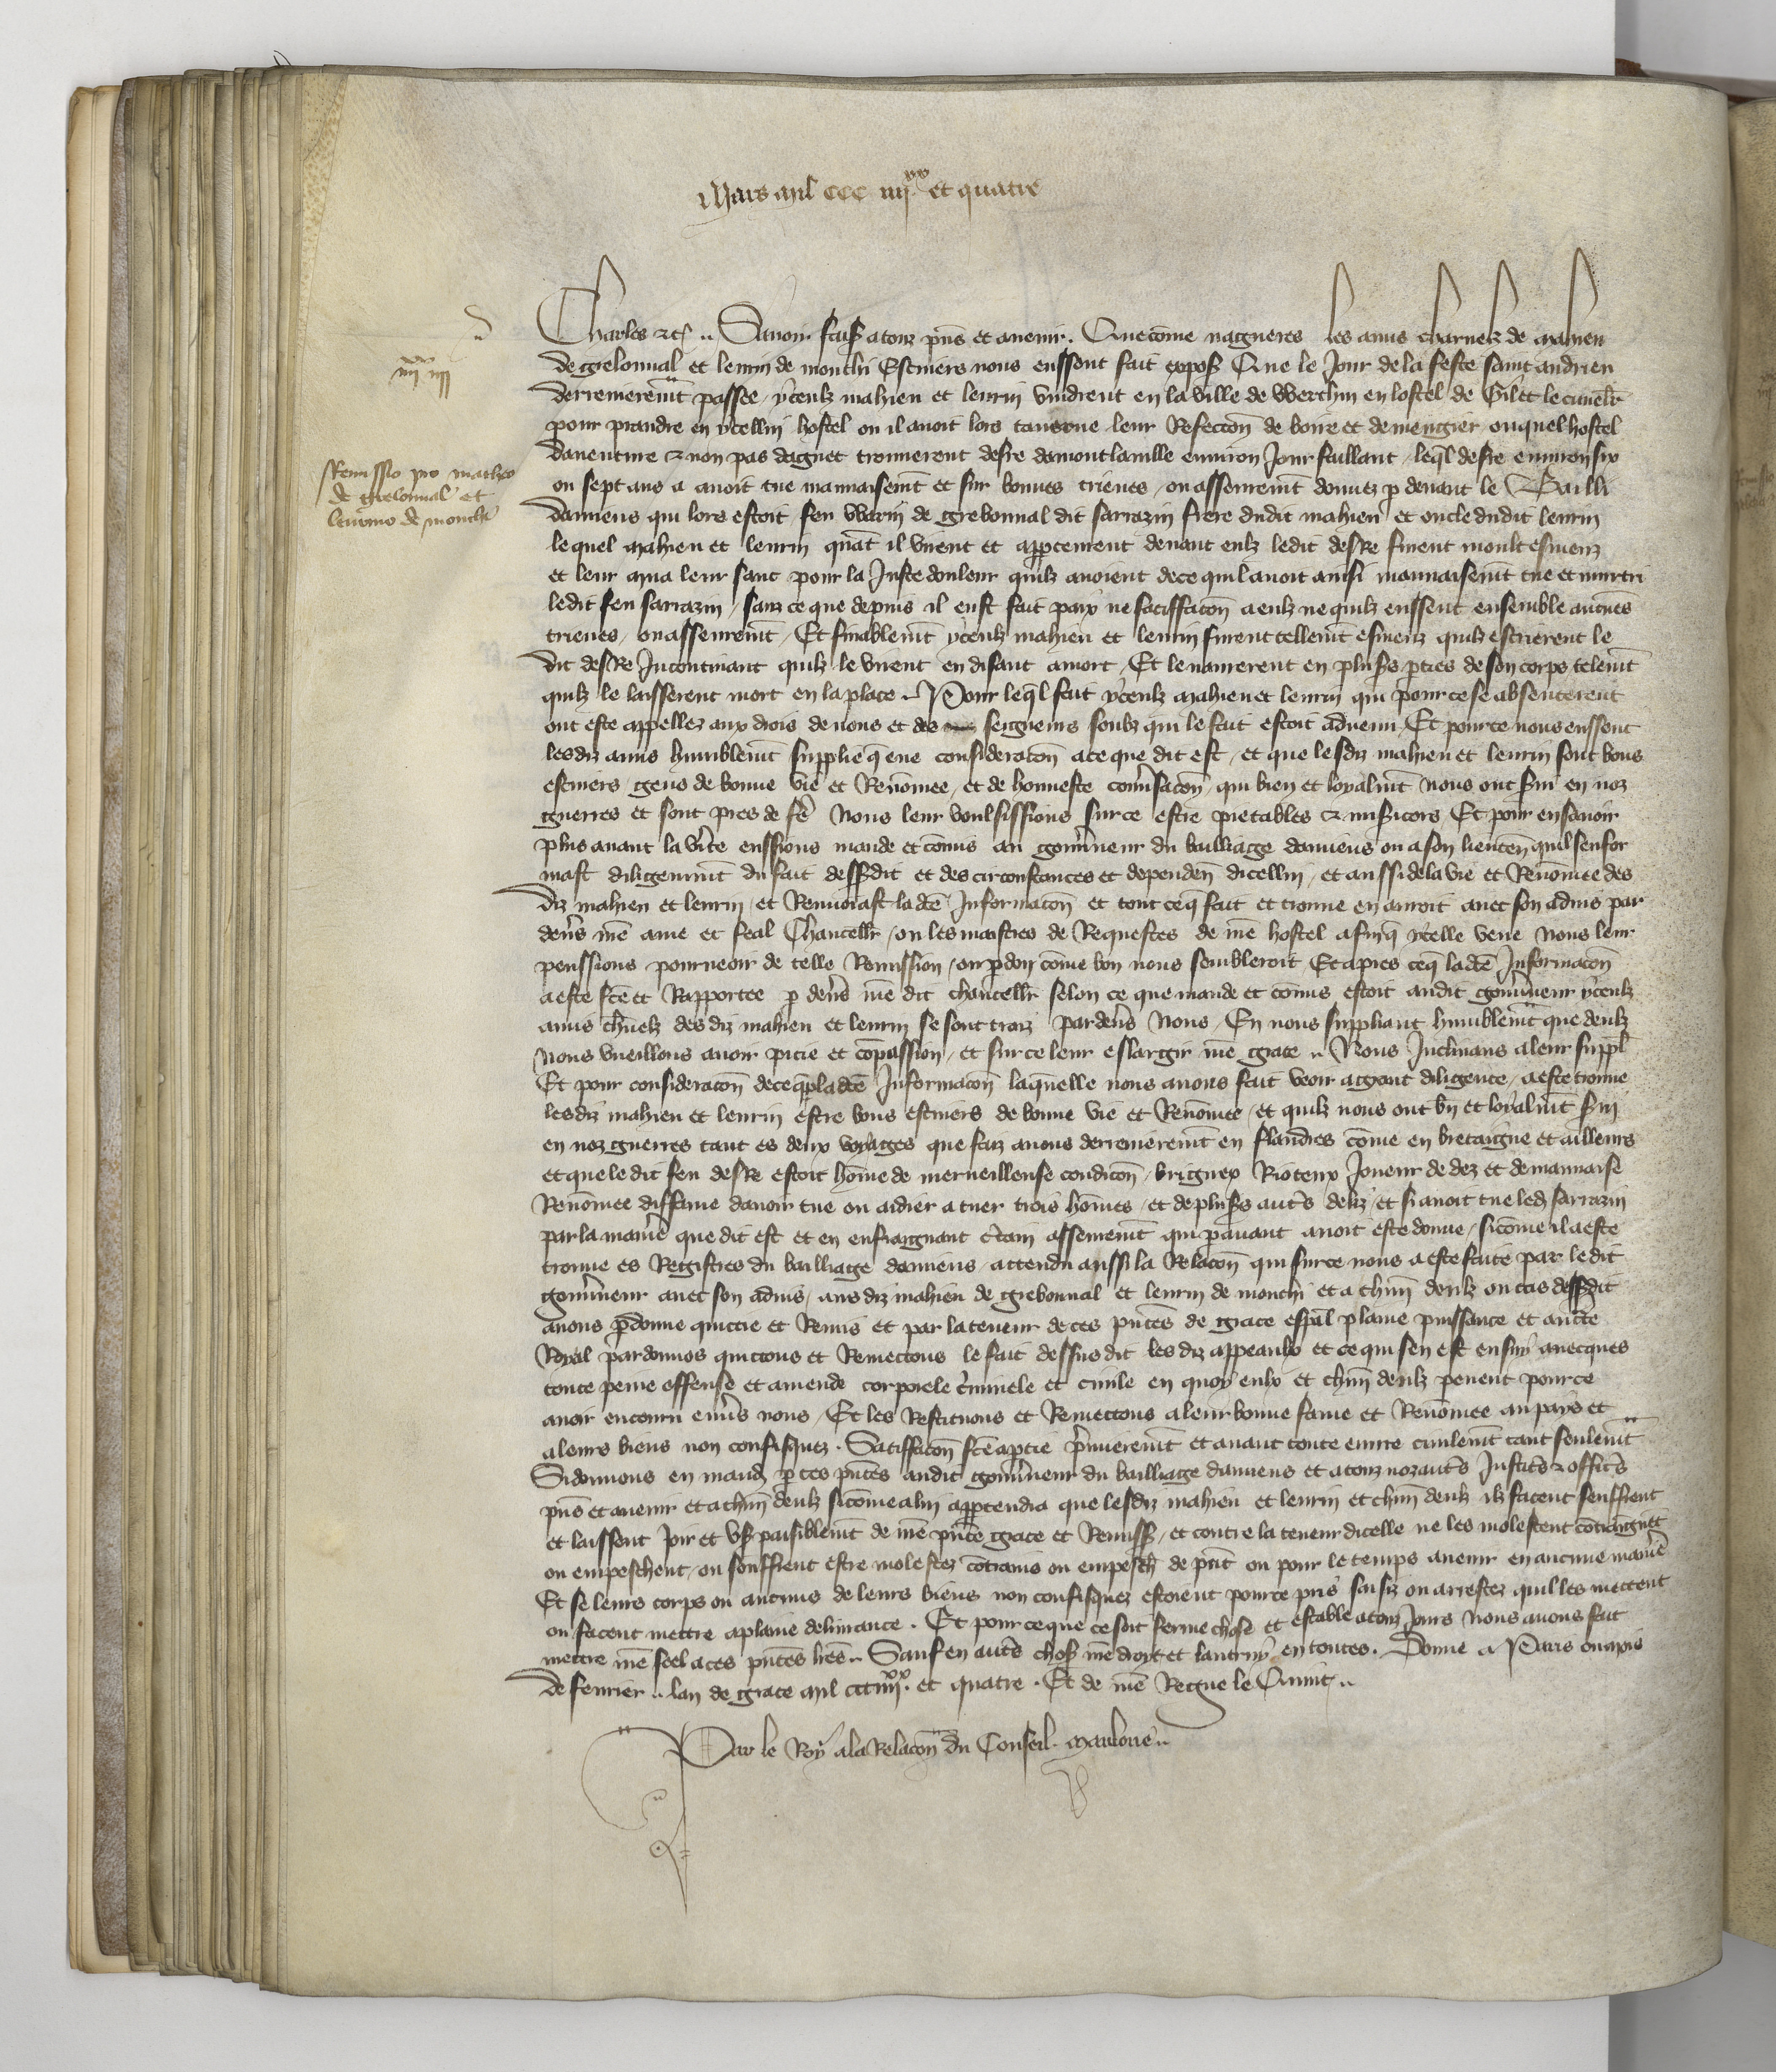 Mars mil ccc iiijxx et quatre
Charles etc. Savoir faiss a touz pns et avenir. Que come nagueres les amis charnelz de Mahieu
de grebonval et leurin de monchi Escuiers nous eussent fait expos Que le Jour de la feste saint andrieu
derrenieremt passee, yceulx mahieu et leurin vindrent en la ville de Werchin en lostel de Gilet
pour prandre en ycellui hostel ou il avoit lors taverne leur Refeccon de boire et de mengier ouquel hostel
daventure et non pas daguet trouverent desre damontlaville environ Jour faillant, leql desre environ six
ou sept ans a avoit tue mauvaisemt et sur bonnes trieves, ou asseuremt donnez p devant le Bailli
damiens qui lors estoit feu Warin de grebonval dit sarrazin frere dudit mahieu et oncle dudit leurin
lequel mahieu et leurin quat il virent et appceurent devant eulz ledit desre furent moult esmeuz
et leur mua leur sanc pour la Juste douleur quilz avoient de ce quil avoit ainsi mauvaisemt tue et murtri
ledit feu sarrazin, sanz ce que depuis il eust fait paix ne satiffacon a eulz ne quilz eussent ensemble aucunes
trieves, ou asseuremt, Et finablemt yceulz mahieu et leurin furent tellemt esmeuz quilz escrierent le
dit desre Incontinant quilz le virent en disant a mort, Et le navrerent en plusrs pties de son corps telemt
quilz le laisserent mort en la place. Pour leql fait yceulz mahieu et leurin qui pour ce se absenterent
ont este appellez aux drois de nous et des seigneurs soubz qui le fait estoit advenu, Et pour ce nous eussent
lesdiz amis humblemt supplie q eue consideracon a ce que dit est, et que lesdiz mahieu et leurin sont bons
escuiers gens de bonne vie et Renomee, et de honneste conversacon, qui bien et loyalmt nous ont svi en noz
guerres et sont pres de fe nous leur voulsissions sur ce estre piteables et misicors, Et pour en savoir
plus avant la vite eussions mande et comis au gouverneur du bailliage damiens ou a son lieuten quil senfor
mast diligemmt du fait dessusdit et des circonstances et dependen dicellui, et aussi de la vie et Renomee des
diz mahieu et leurin, et Renvoiast ladce Informacon et tout ce q fait et trouve en auroit avec son advis par
devs nre ame et feal Chancellr, ou les maistres de Requestes de nre hostel afin q ycelle veue nous leur
peussions pourveoir de telle Remission, ou pdon come bon nous sembleroit Et apres ce q ladce Informacon
a este fce et Rapportee p devs nre dit chancellr selon ce que mande et comis estoit audit gouverneur yceulz
amis chnelz des diz mahieu et leurin se sont traiz par devs nous, En nous suppliant humblemt que deulz
nous vueillons avoir pitie et compassion, et sur ce leur eslargir nre grace. Nous Inclinans a leur suppl
Et pour consideracon de ce q p ladce Informacon laquelle nous avons fait veoir a grant diligence, a este trouve
lesdiz mahieu et leurin estre bons escuiers de bonne vie et Renomee, et quilz nous ont bn et loyalmt svi
en noz guerres tant es deux voyages que faiz avons derrenieremt en flandres come en bretaigne et ailleurs
et que le dit feu desre estoit home de merveilleuse condicon, brigueux Rioteux Joueur de dez et de mauvaise
Renomee diffame davoir tue ou aidier a tuer trois homes, et de plusrs auts deliz, et si avoit tue led sarrazin
par la manie que dit est et en enfraignant ctain asseuremt qui pavant avoit este donne, si come il a este
trouve es Registres du bailliage damiens, attendu aussi la Relacon qui sur ce nous a este faite par le dit
gouverneur avec son advis, aus diz mahieu de grebonval et leurin de monchi et a chun deulz ou cas dessdit
avons pdonne quictie et Remis et par la teneur de ces pntes de grace espal plaine puissance et aucte
Royal pardonnons quictons et Remectons le fait dessus dit les diz appeaulx et ce qui sen est ensuy avecques
toute peine offense et amende corporele criminele et civile en quoy eulx et chun deulz pevent pour ce
avoir encouru envs nous, Et les Restituons et Remectons a leur bonne fame et Renomee au pays et
a leurs biens non confisquez. Satiffacon fce a ptie premieremt et avant toute euvre civilemt tant seulemt
Si donnons en mandt p ces pntes audit gouverneur du bailliage damiens et a touz noz auts Justics et offics
pns et avenir et a chun deulz si come a lui apptendra que lesdiz mahieu et leurin et chun deulz ilz facent seuffrent
et laissent Joir et us paisiblemt de nre pnte grace et Remiss, et contre la teneur dicelle ne les molestent contraignet
ou empeschent, ou seuffrent estre molestez contrains ou empesch de pnt ou pour le temps avenir en aucune manie
Et se leurs corps ou aucuns de leurs biens non confisquez estoient pour ce pris saisiz ou arrestez quil les mettent
ou facent mettre a plaine delivrance. Et pour ce que ce soit ferme chose et estable a touz Jours Nous avons fait
mettre nre seel a ces pntes lres. Sauf en auts chos nre droit et lautruy en toutes. Donne a Paris ou mois
de fevrier. lan de grace mil ccc iiijxx et quatre. Et de nre Regne le Quint.
Par le Roy a la Relacon du Conseil. Maulone.
iiijxx iiij
Remissio pro matheo
de grebonval et
leurino de monchi